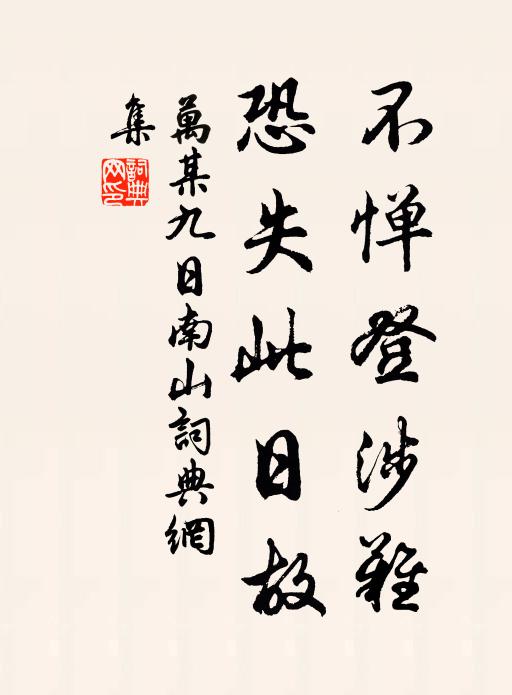 不惮登涉难
恐失此日故
萬某九日南山詞典網
集
詞典
网印